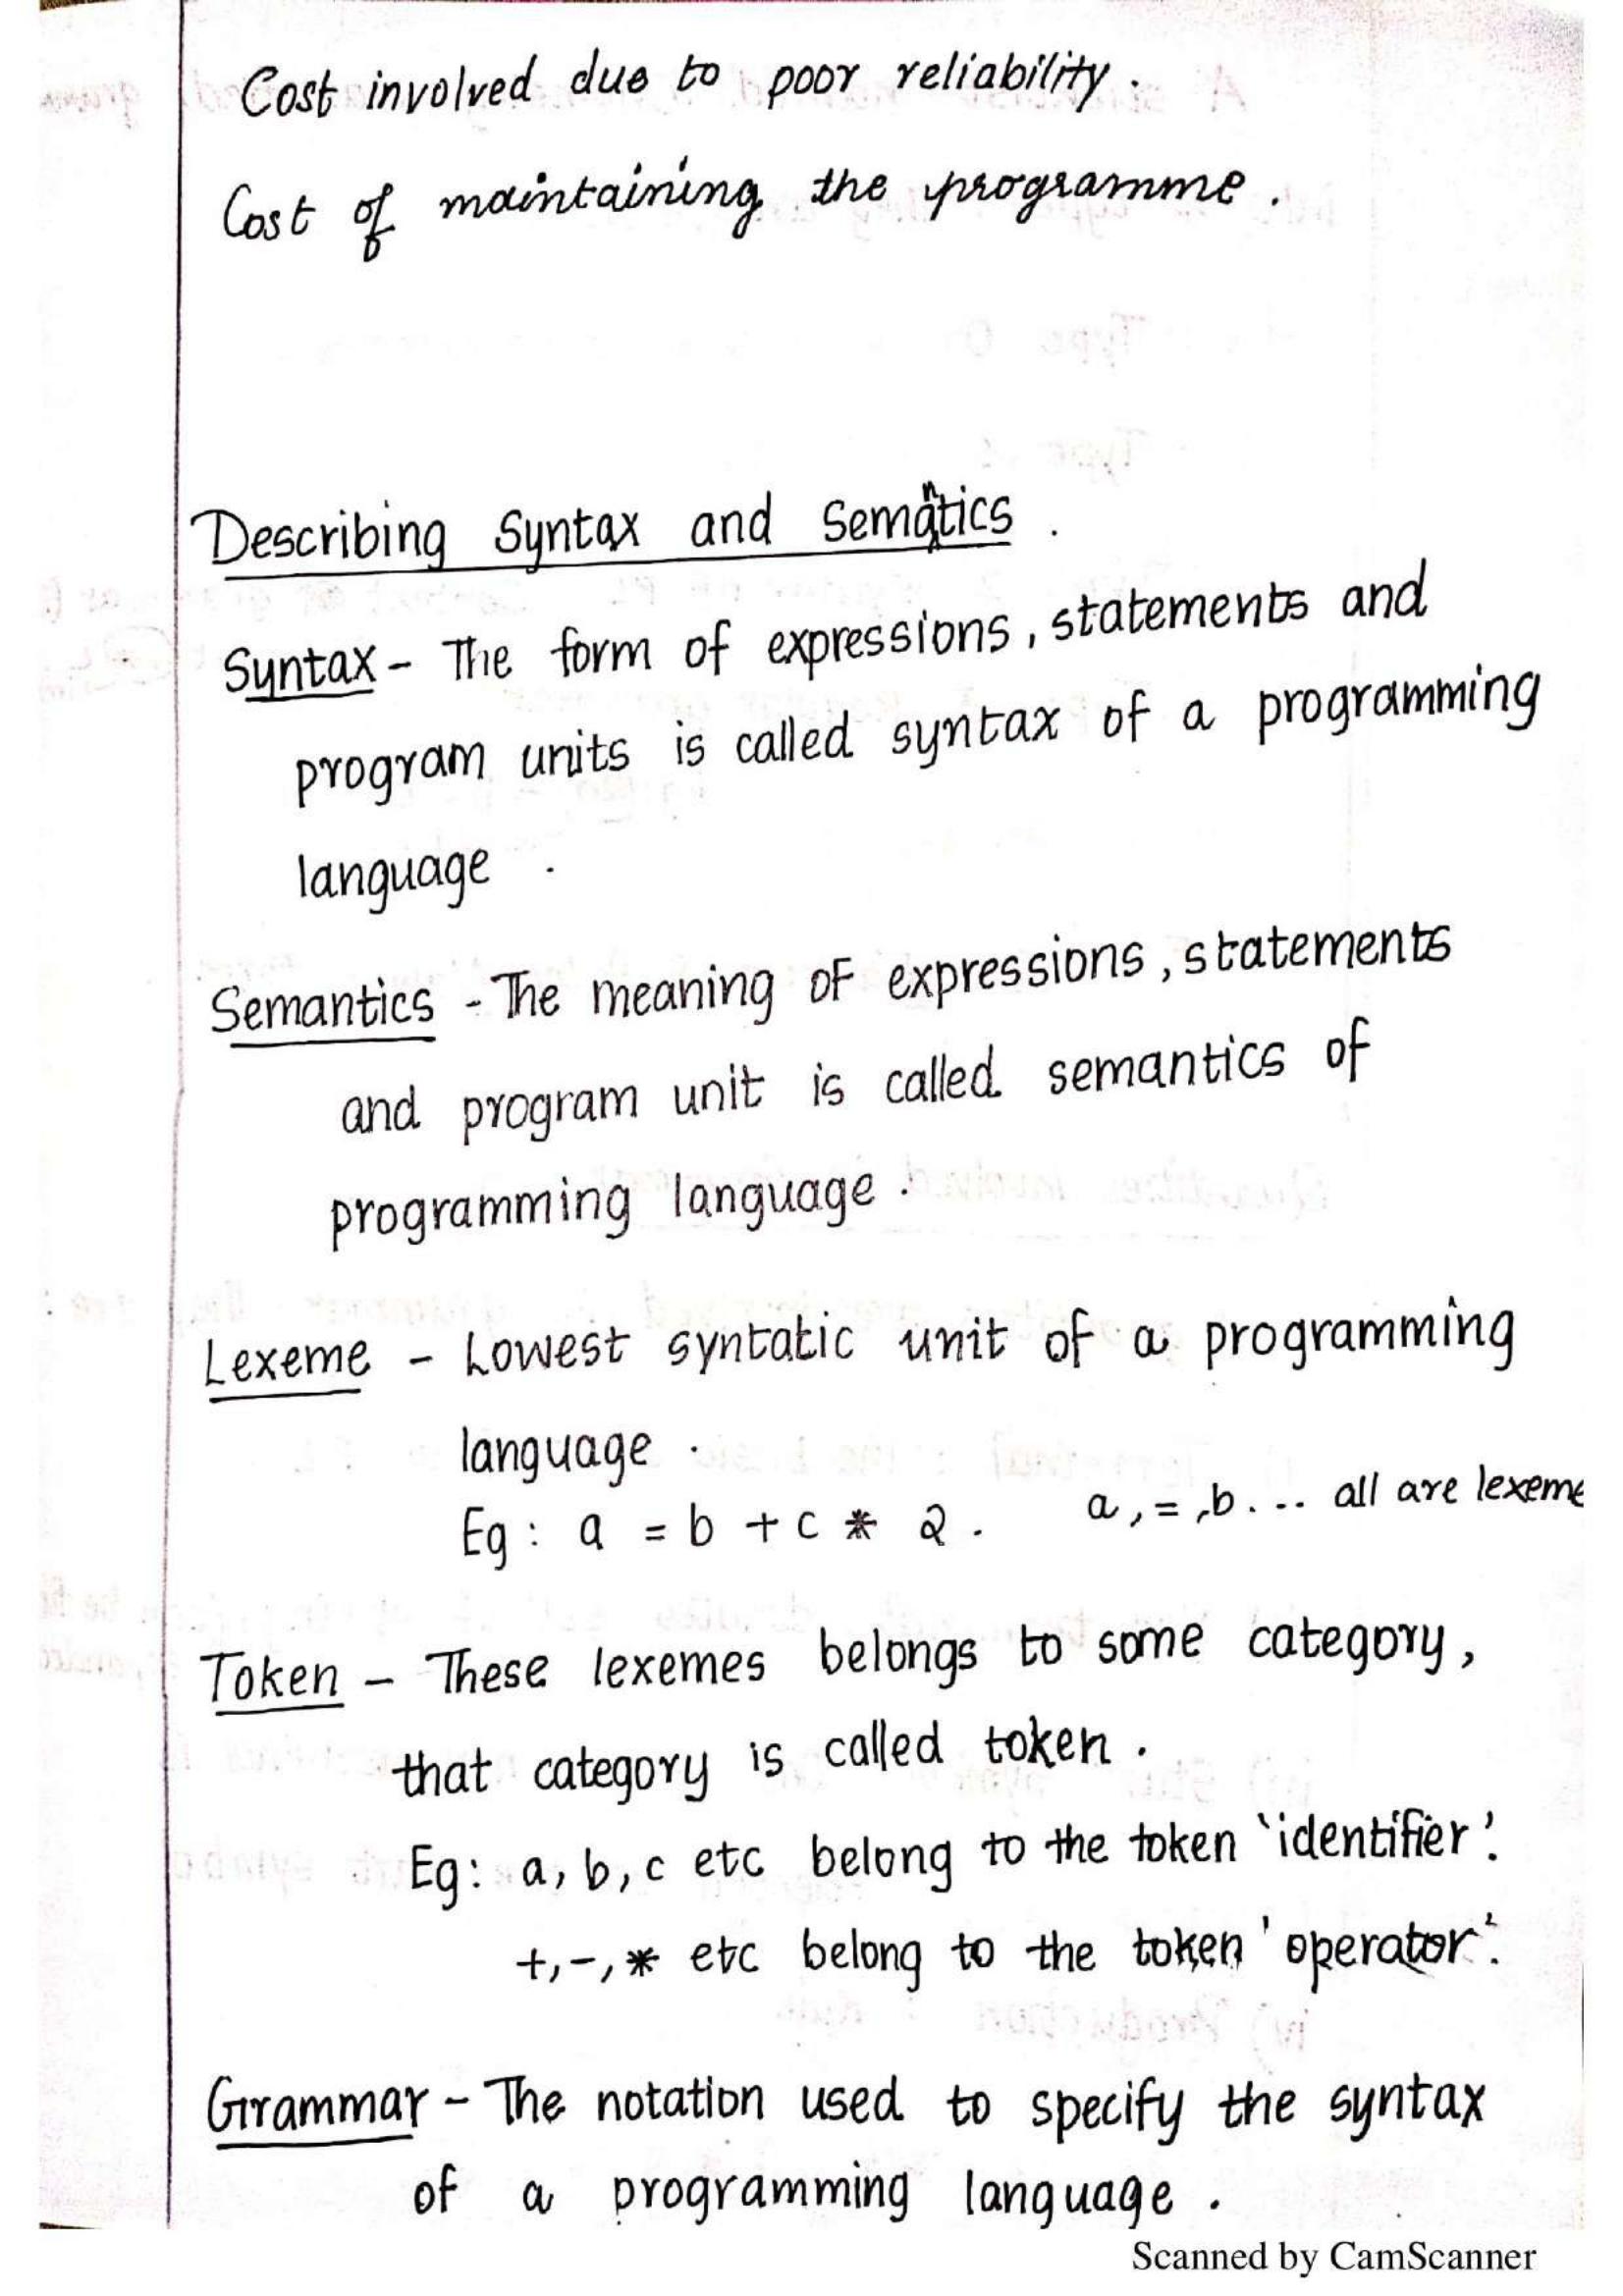 Cost involved due to poor reliability.
Cost of maintaining the programme.
Describing Syntax and Semantics.
Syntax - The form of expressions, statements and
program units is called syntax of a programming
language.
Semantics - The meaning of expressions, statements
and program unit is called semantics of
programming language.
Lexeme - Lowest syntatic unit of a programming
language.
Eg: a = b + c * 2. a, =, b... all are lexeme
Token - These lexemes belongs to some category,
that category is called token.
Eg: a, b, c etc belong to the token 'identifier'.
+, -, * etc belong to the token 'operator'.
Grammar - The notation used to specify the syntax
of a programming language.
Scanned by CamScanner